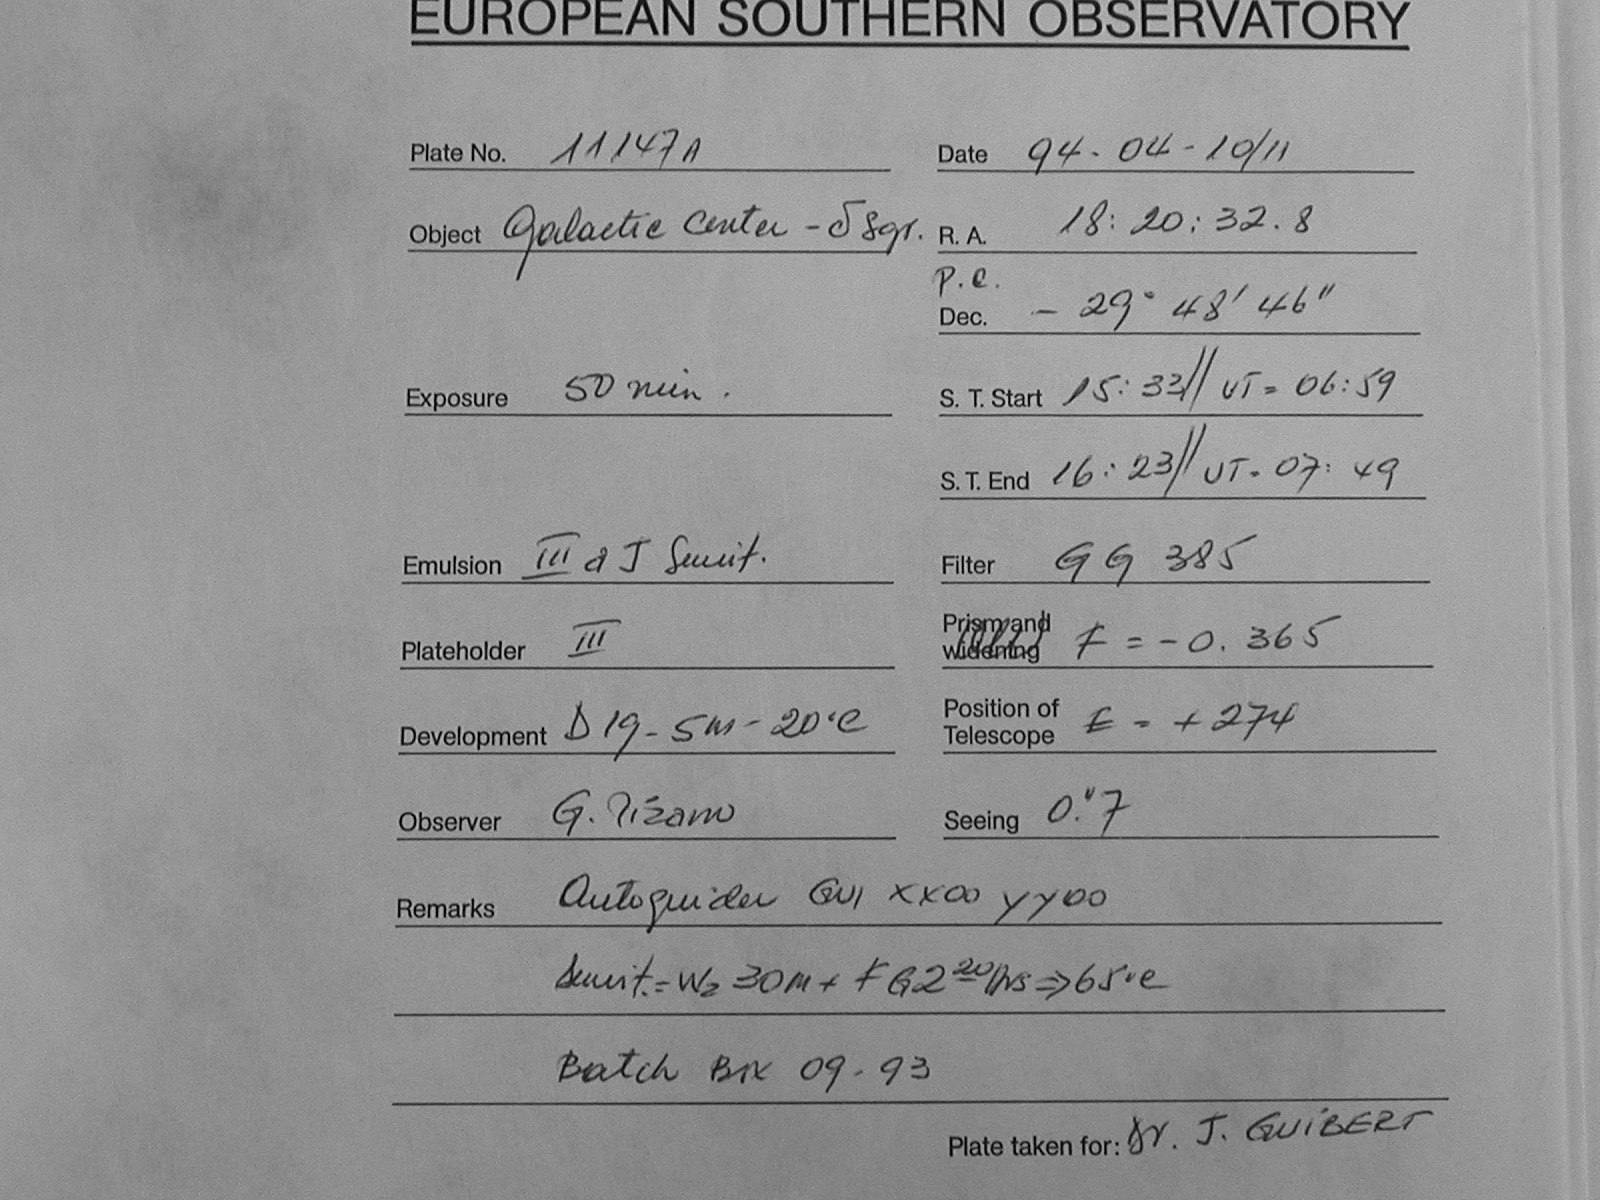 EUROPEAN SOUTHERN OBSERVATORY
Plate No. 11147A
Date 94-04-10/11
Object Galactic Center - δ Sgr.
R. A. 18:20:32.8
P.C.
Dec. - 29° 48' 46"
Exposure 50 min.
S. T. Start 15:33// UT= 06:59
S. T. End 16:23// UT= 07:49
Emulsion III a J Sensit.
Filter GG 385
Plateholder III
Prism and widening F = -0.365
Development D19-5m-20°C
Position of Telescope E = +274
Observer G. Pizarro
Seeing 0."7
Remarks Autoguider GU1 XX00 YY00
Sensit.= N2 30m + FG2 20 hrs => 65°C
Batch Box 09-93
Plate taken for: Dr. J. GUIBERT